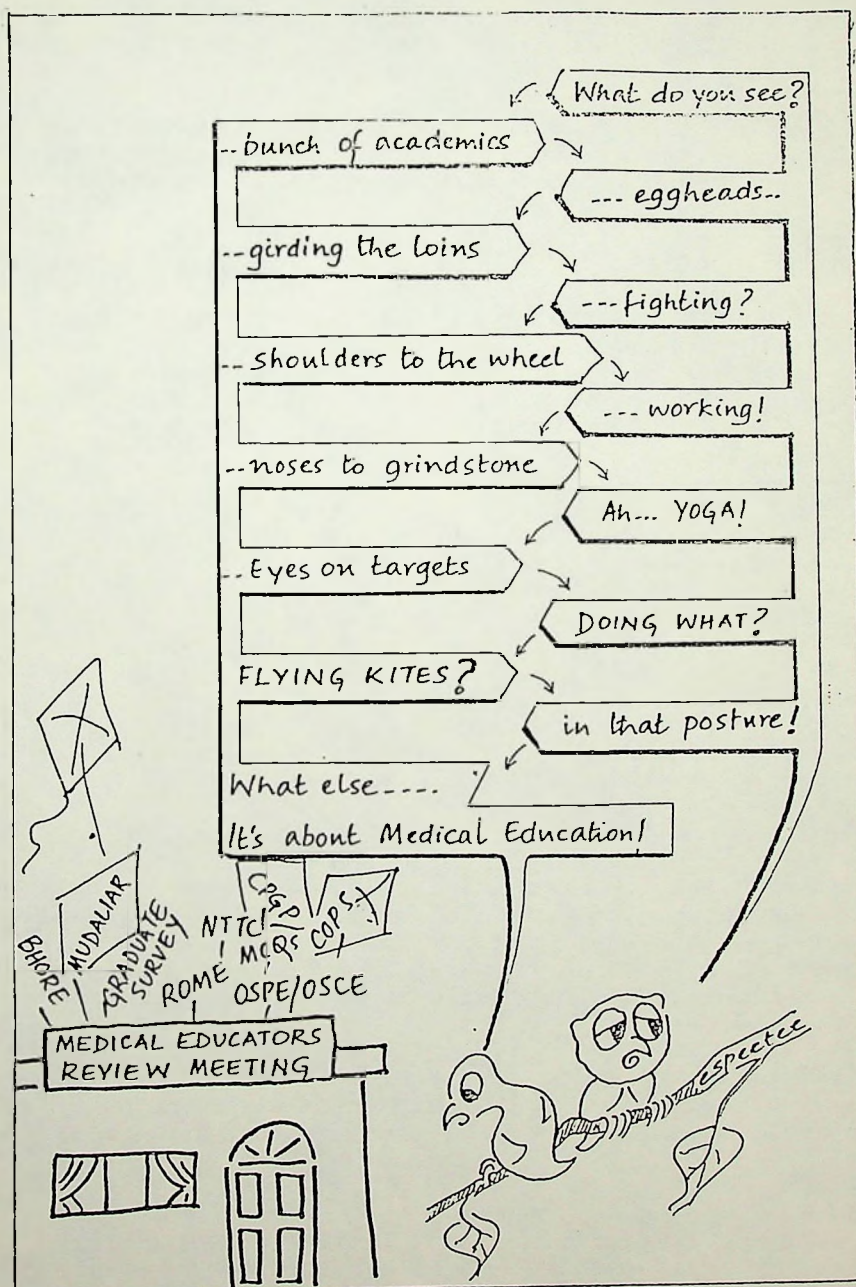 What do you see?
--bunch of academics
--- eggheads..
--girding the loins
---fighting?
-- shoulders to the wheel
--- working!
--noses to grindstone
Ah... YOGA!
-- Eyes on targets
DOING WHAT?
FLYING KITES?
in that posture!
What else----.
It's about Medical Education!
BHORE
MUDALIAR
GRADUATE
SURVEY
ROME
NTTC
CPGP
MCQs
COPS
OSPE/OSCE
MEDICAL EDUCATORS
REVIEW MEETING
espeetee